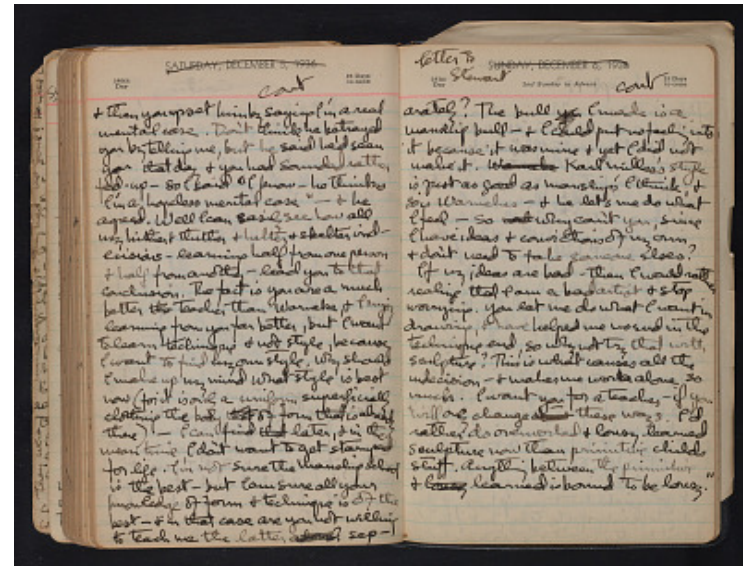 SATURDAY, DECEMBER 5, 1936
cont
& than you upset him by saying I'm a real
mental case. Don't think he betrayed
you by telling me, but he said he'd seen
you that day & you had sounded rather
fed-up - so I said "I know - he thinks
I'm a hopeless mental case" - & he
agreed. Well I can easily see how all
my hither & thither & helter & skelter ind-
ecisions - learning half from one person
& half from another - lead you to that
conclusion. The fact is you are a much
better teacher than Warneke, & I enjoy
learning from you far better, but I want
to learn technique & not style, because
I want to find my own style. Why should
I make up my mind what style is best
now (for it is only a uniform superficially
clothing the form that is already
there) - I can find that later, & in the
mean time I don't want to get stamped
for life. I'm not sure the Manship school
is the best - but I am sure all your
knowledge of form & technique is of the
best - & in that case are you not willing
to teach me the latter sep-
letter to
Stewart
SUNDAY, DECEMBER 6, 1936
2nd Sunday in Advent
cont
arately? The bull I made is a
manship bull - & I could put no feeling into
it because it was mine & yet I did not
make it. Karl Milles's style
is just as good as manship's I think, &
so is Warneke's - & he lets me do what
I feel - so why can't you, since
I have ideas & convictions of my own
& don't need to take someone elses?
If my ideas are bad - then I would rather
realize that I am a bad artist & stop
worrying. You let me do what I want in
drawing, & have helped me no end in the
technique end, so why not try that with
sculpture? This is what causes all the
indecision - & makes me work alone so
much. I want you for a teacher - if you
will only change these ways. I'd
rather do overworked & lousy learned
sculpture now than primitive childs
stuff. Anything between the primitive
& learned is bound to be lousy."